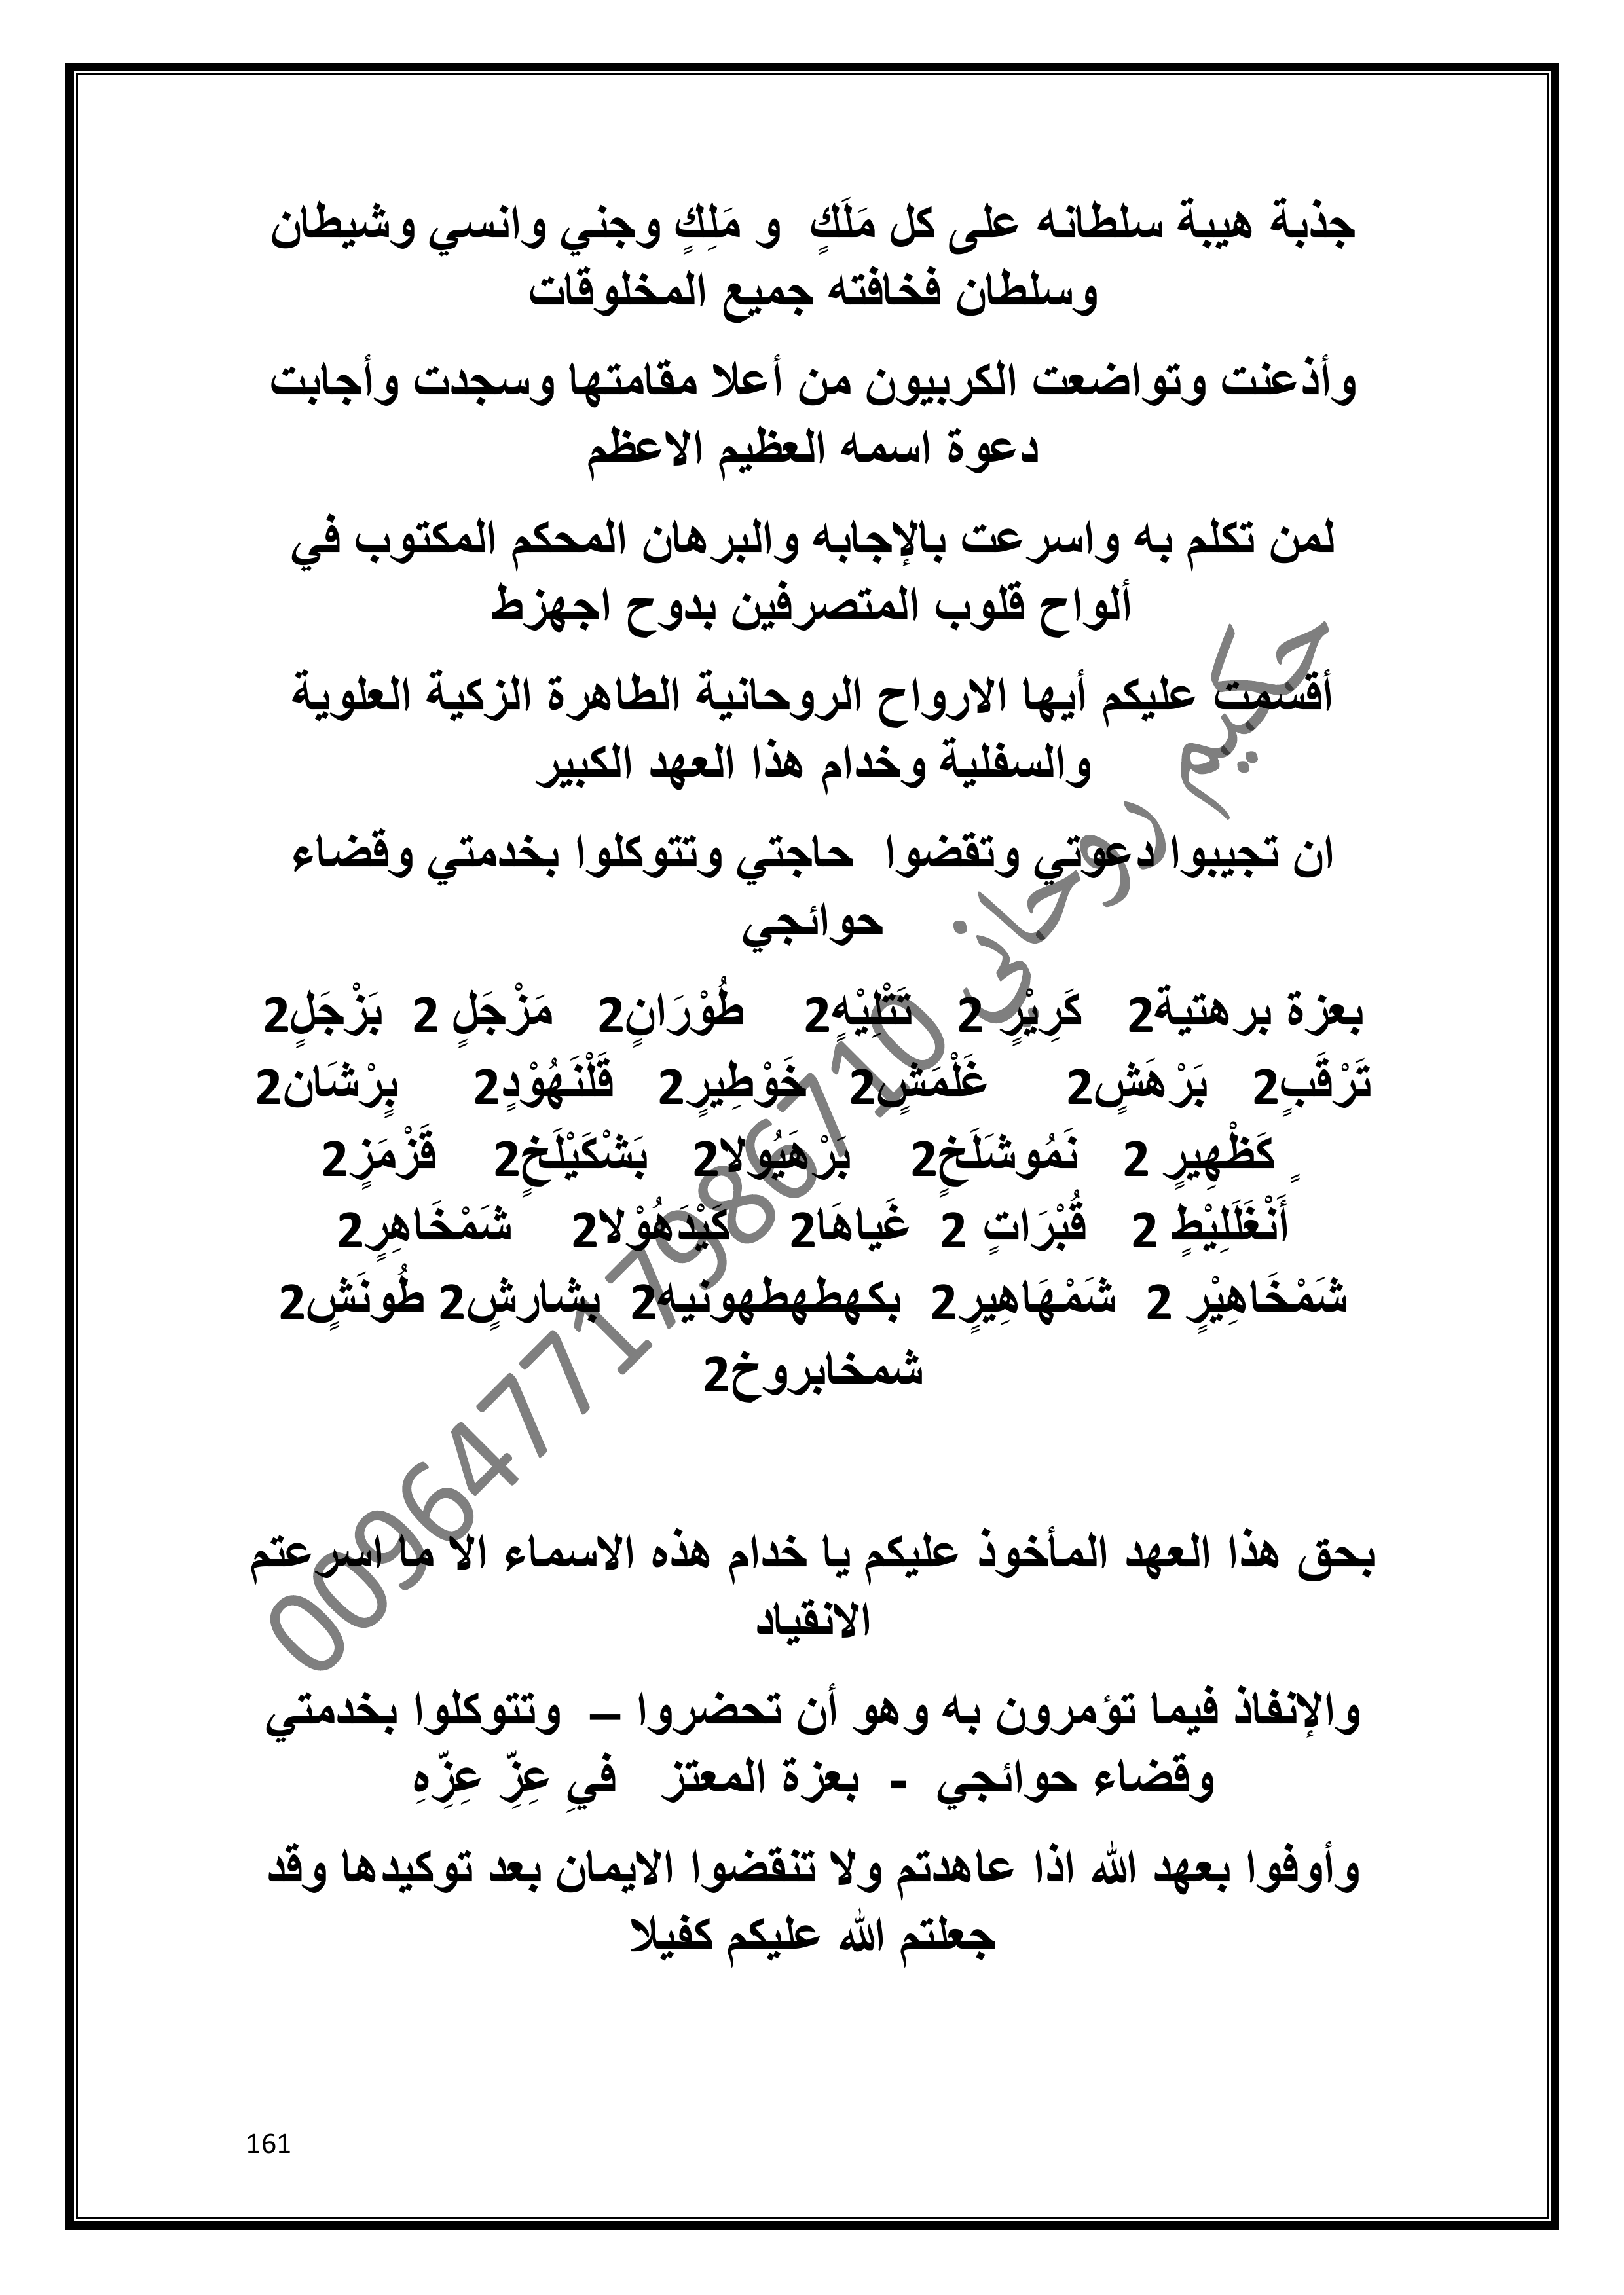 جذبة هيبة سلطانه على كل مَلَكٍ و مَلِكٍ وجني وانسي وشيطان
وسلطان فخافته جميع المخلوقات
وأذعنت وتواضعت الكربيون من أعلا مقامتها وسجدت وأجابت
دعوة اسمه العظيم الاعظم
لمن تكلم به واسرعت بالإجابه والبرهان المحكم المكتوب في
ألواح قلوب المتصرفين بدوح اجهزط
أقسمت عليكم أيها الارواح الروحانية الطاهرة الزكية العلوية
والسفلية وخدام هذا العهد الكبير
ان تجيبوا دعوتي وتقضوا حاجتي وتتوكلوا بخدمتي وقضاء
حوائجي
بعزة برهتية2 كَرِيْرٍ 2 تَتْلِيْهٍ2 طُوْرَانٍ2 مَزْجَلٍ 2 بَزْجَلٍ2
تَرْقَبٍ2 بَرْهَشٍ2 غَلْمَشٍ2 خَوْطِيرٍ2 قَلْنَهُوْدٍ2 بِرْشَان2
كَظْهِيرٍ 2 نَمُوشَلَخٍ2 بَرْهَيُولا2 بَشْكَيْلَخٍ2 قَزْمَزٍ2
أَنْغَلَلِيْطٍ 2 قُبْرَاتٍ 2 غَياهَا2 كَيْدَهُوْلا2 شَمْخَاهِرٍ2
شَمْخَاهِيْرٍ 2 شَمْهَاهِيرٍ2 بكهطهطهونيه2 بشارشٍ2 طُونَشٍ2
شمخابروخ2
بحق هذا العهد المأخوذ عليكم يا خدام هذه الاسماء الا ما اسرعتم
الانقياد
والإنفاذ فيما تؤمرون به وهو أن تحضروا – وتتوكلوا بخدمتي
وقضاء حوائجي - بعزة المعتز فيِ عِزِّ عِزِّهِ
وأوفوا بعهد الله اذا عاهدتم ولا تنقضوا الايمان بعد توكيدها وقد
جعلتم الله عليكم كفيلا
حكيم روحاني 009647717986710
161